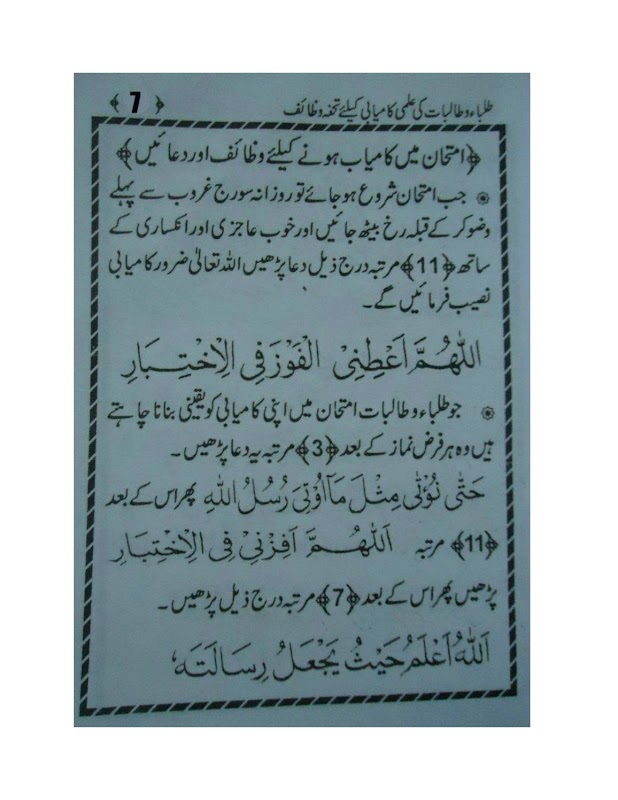 طلباء و طالبات کی علمی کامیابی کیلئے تحفہ وظائف ﴿7﴾
﴿امتحان میں کامیاب ہونے کیلئے وظائف اور دعائیں﴾
جب امتحان شروع ہو جائے تو روزانہ سورج غروب سے پہلے
وضو کر کے قبلہ رخ بیٹھ جائیں اور خوب عاجزی اور انکساری کے
ساتھ ﴿11﴾ مرتبہ درج ذیل دعا پڑھیں اللہ تعالیٰ ضرور کامیابی
نصیب فرمائیں گے۔
اَللّٰهُمَّ اَعْطِنِیْ الْفَوْزَ فِی الْاِخْتِبَارِ
جو طلباء و طالبات امتحان میں اپنی کامیابی کو یقینی بنانا چاہتے
ہیں وہ ہر فرض نماز کے بعد ﴿3﴾ مرتبہ یہ دعا پڑھیں۔
حَتّٰی نُؤْتٰی مِثْلَ مَآ اُوْتِیَ رُسُلُ اللّٰهِ پھر اس کے بعد
﴿11﴾ مرتبہ اَللّٰهُمَّ اَفِزْنِیْ فِی الْاِخْتِبَارِ
پڑھیں پھر اس کے بعد ﴿7﴾ مرتبہ درج ذیل پڑھیں۔
اَللّٰهُ اَعْلَمُ حَیْثُ یَجْعَلُ رِسَالَتَهٗ